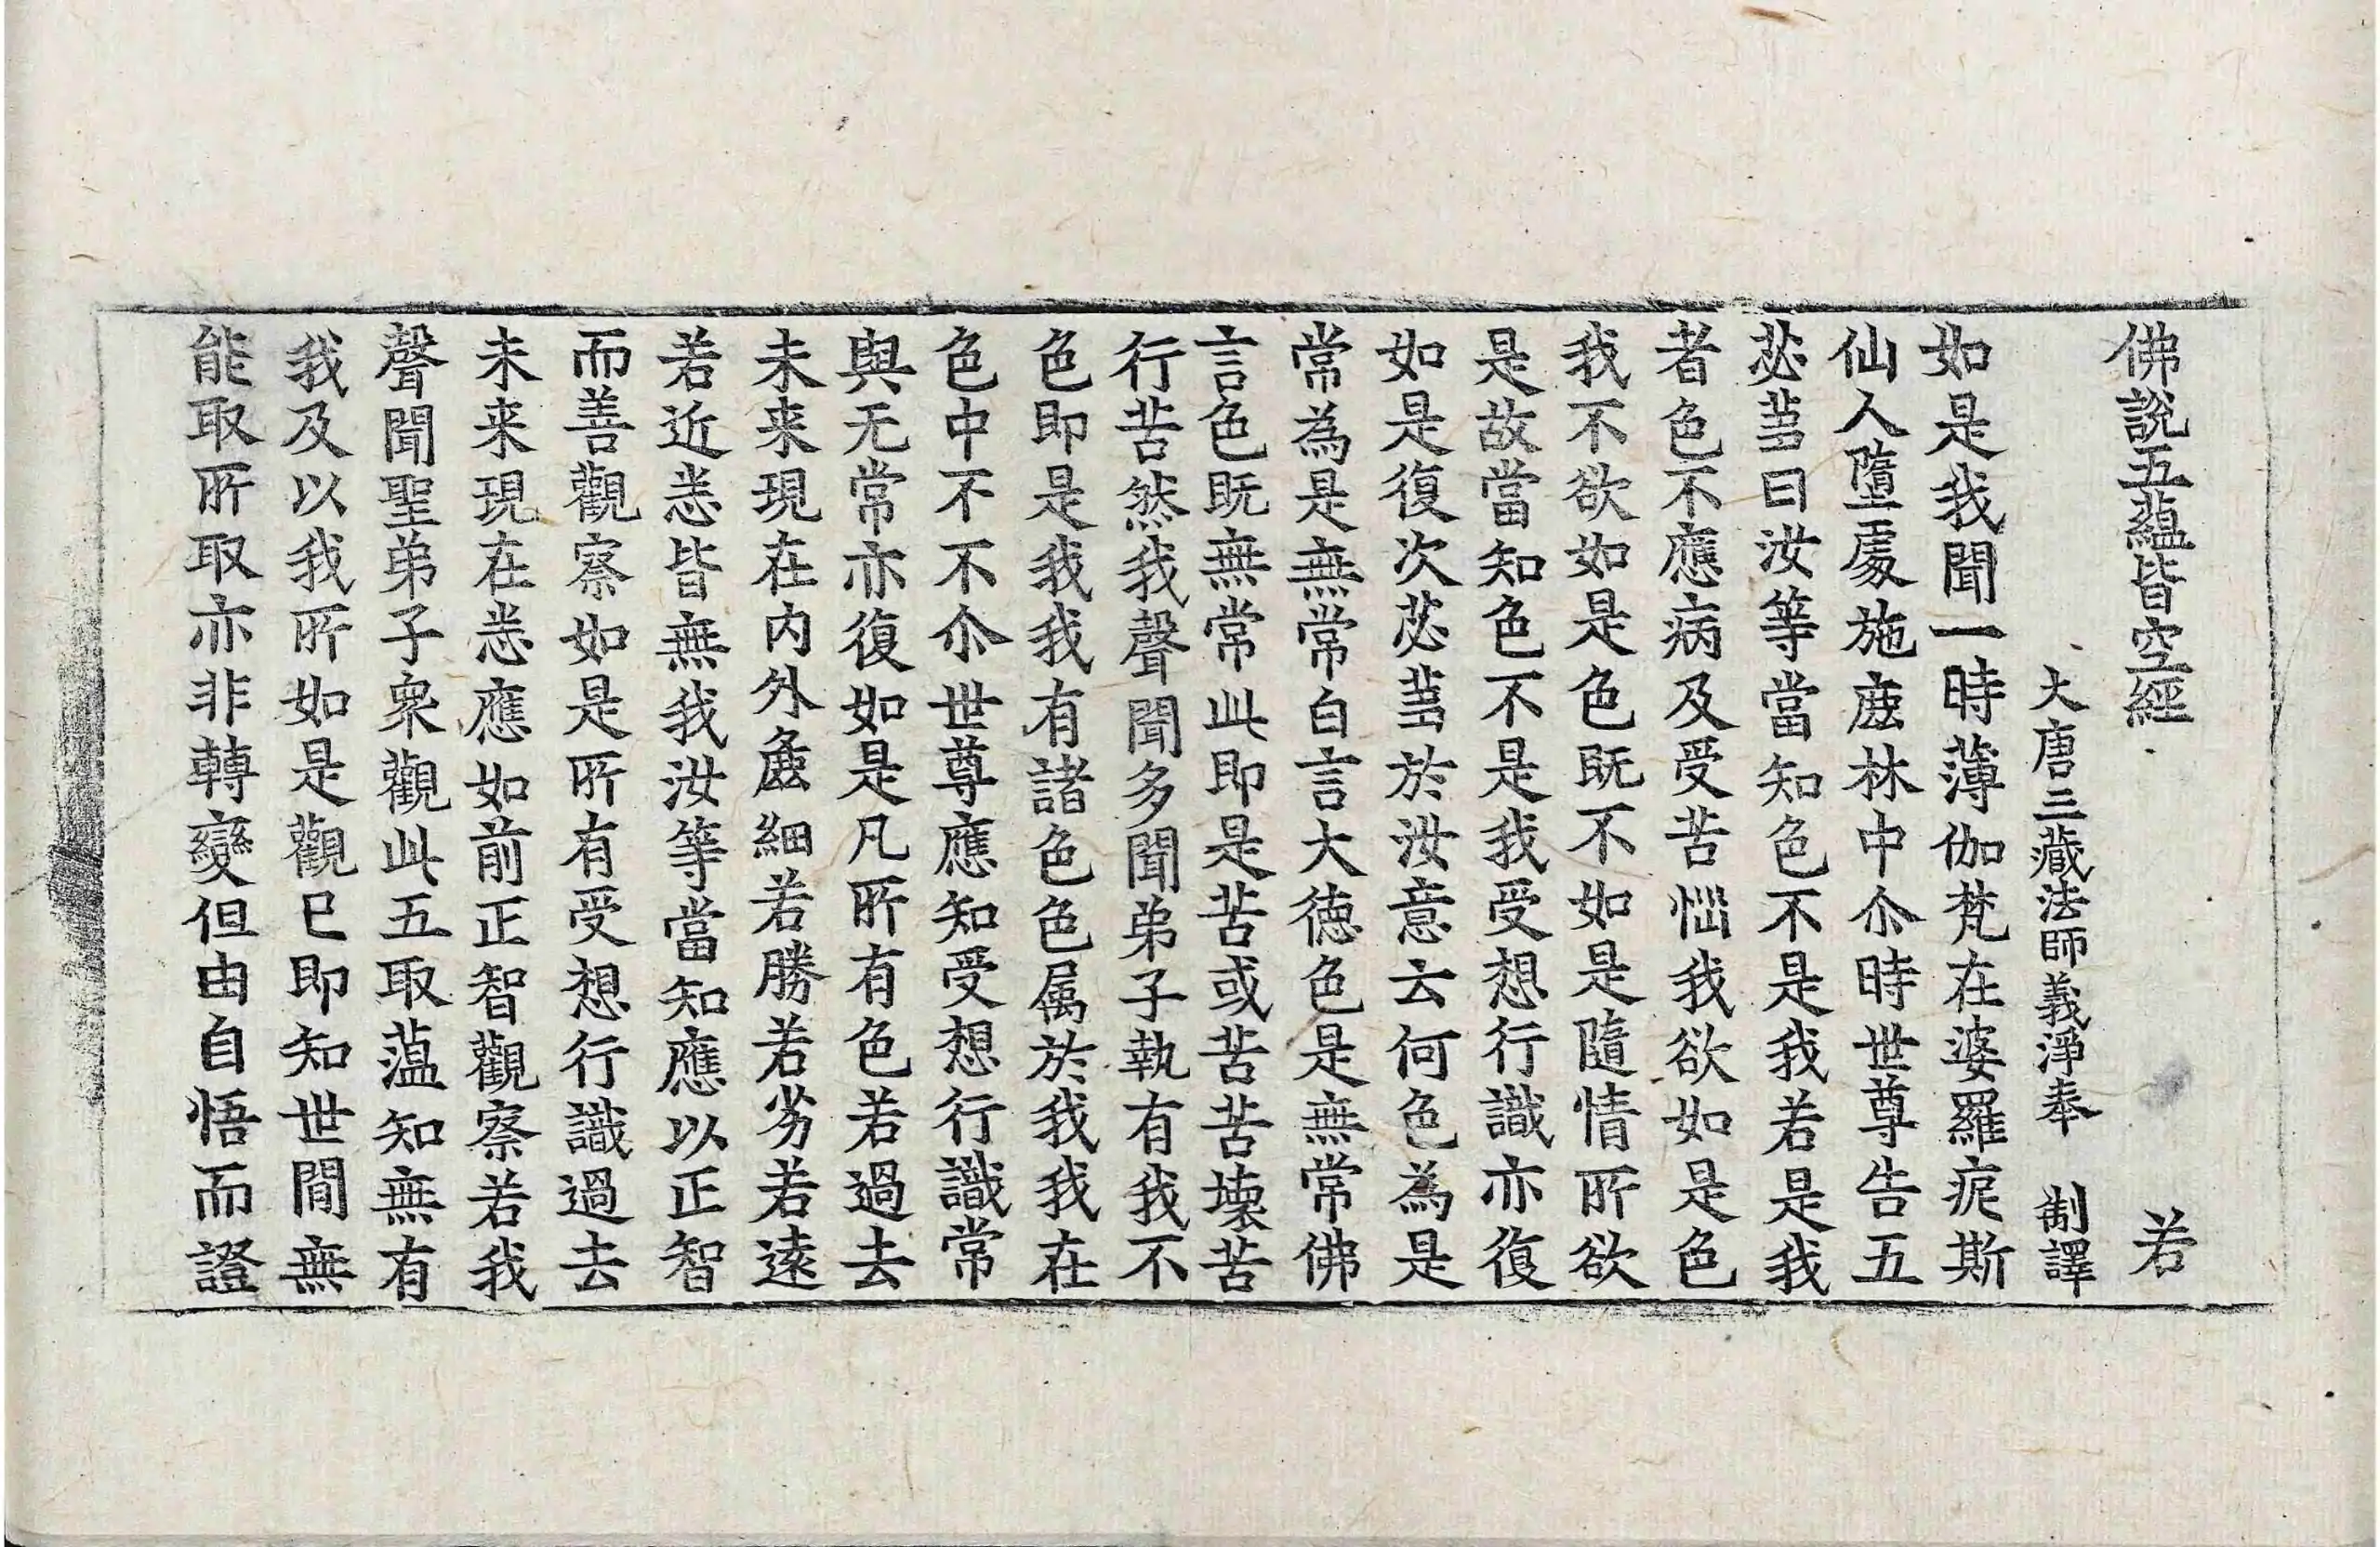 佛說五蘊皆空經 若
大唐三藏法師義淨奉 制譯
如是我聞一時薄伽梵在婆羅痆斯
仙人墮處施鹿林中尒時世尊告五
苾蒭曰汝等當知色不是我若是我
者色不應病及受苦惱我欲如是色
我不欲如是色既不如是隨情所欲
是故當知色不是我受想行識亦復
如是復次苾蒭於汝意云何色為是
常為是無常白言大德色是無常佛
言色既無常此即是苦或苦苦壞苦
行苦然我聲聞多聞弟子執有我不
色即是我我有諸色色属於我我在
色中不不尒世尊應知受想行識常
與无常亦復如是凡所有色若過去
未来現在內外麁細若勝若劣若遠
若近悉皆無我汝等當知應以正智
而善觀察如是所有受想行識過去
未来現在悉應如前正智觀察若我
聲聞聖弟子衆觀此五取蕰知無有
我及以我所如是觀已即知世閒無
能取所取亦非轉變但由自悟而證